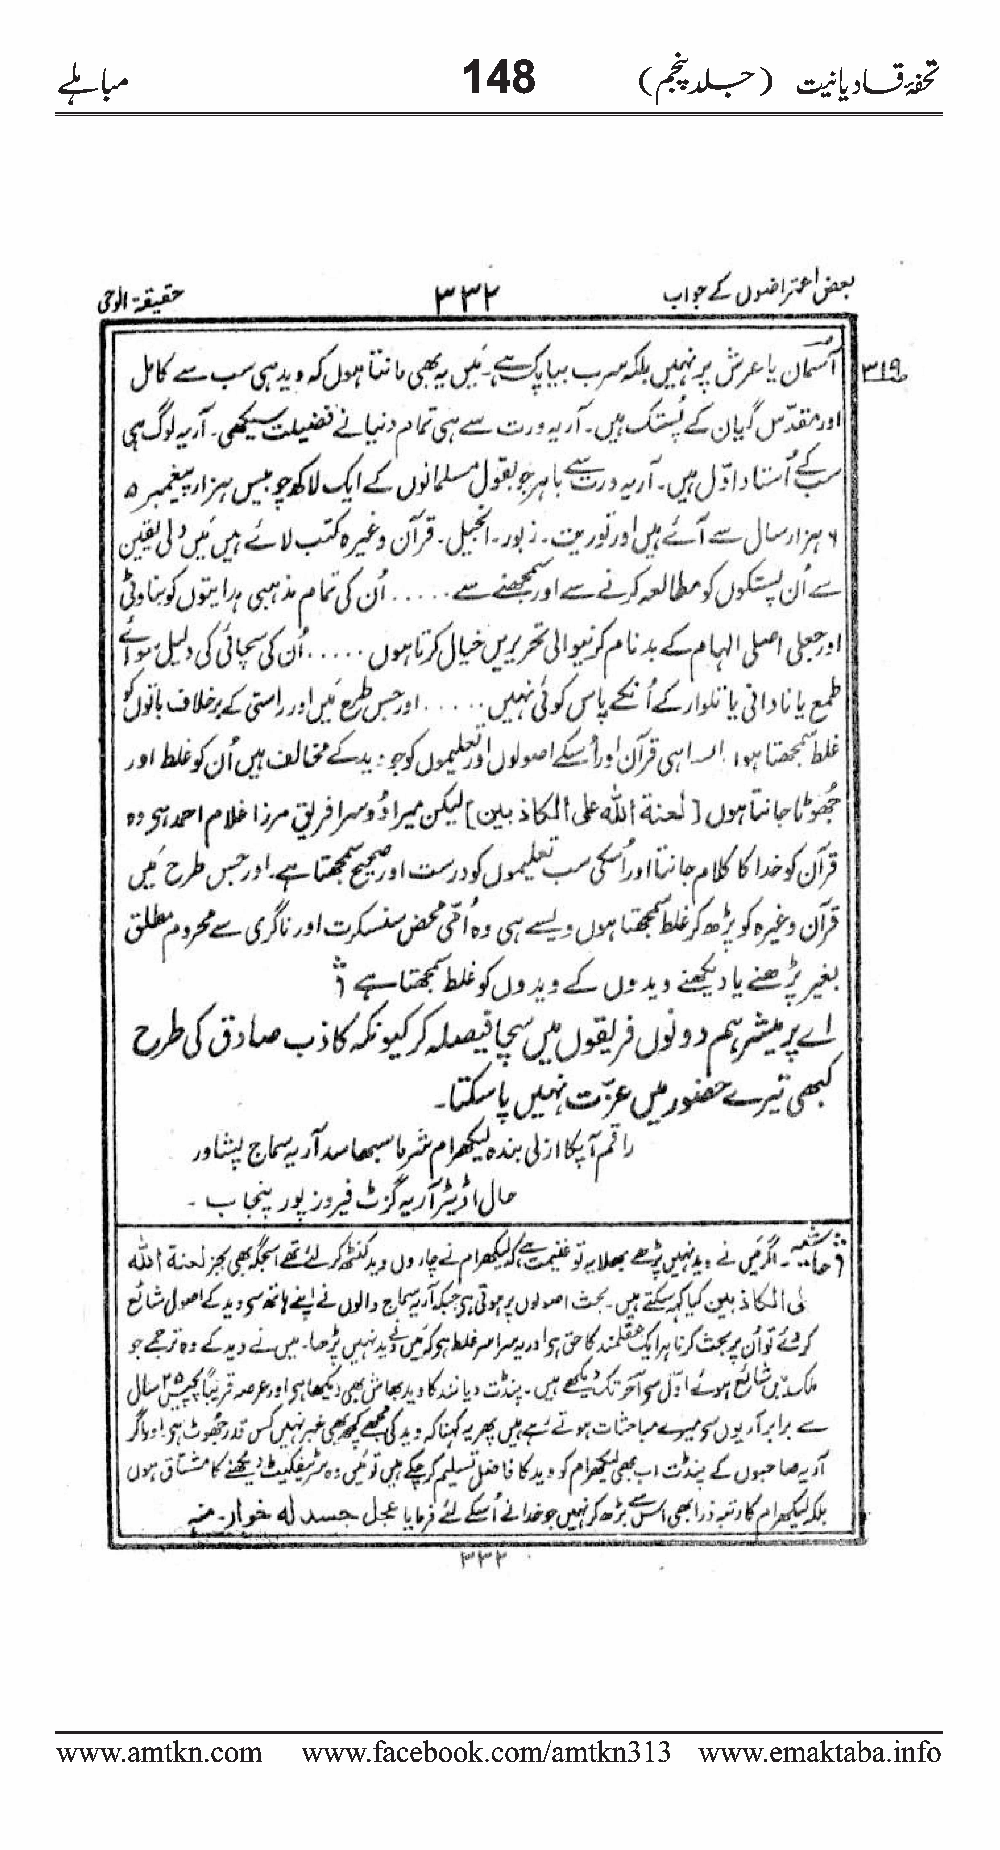 تحفۂ قادیانیت (جلد پنجم) 148 مباہلے
بعض اعتراضوں کے جواب ۳۳۲ حقیقۃ الوحی
آسمان یا عرش پر نہیں بلکہ سرب بیاپک ہے۔ مَیں یہ بھی مانتا ہوں کہ وید ہی سب سے کامل
۳۱۹
اور مقدّس گیان کے پُستک ہیں۔ آریہ ورت سے ہی تمام دنیا نے فضیلت سیکھی۔ آریہ لوگ ہی
سب کے اُستاد اوّل ہیں۔ آریہ ورت سے باہر جو بقول مسلمانوں کے ایک لاکھ چوبیس ہزار پیغمبر ۵
۶ ہزار سال سے آئے ہیں اور توریت۔ زبور۔ انجیل۔ قرآن وغیرہ کتب لائے ہیں مَیں دلی یقین
سے اُن پستکوں کو مطالعہ کرنے سے اور سمجھنے سے ..... اُن کی تمام مذہبی ہدایتوں کو بناوٹی
اور جعلی اصلی الہام کے بدنام کرنیوالی تحریریں خیال کرتا ہوں ..... اُن کی سچائی کی دلیل سوائے
طمع یا نادانی یا تلوار کے اُنکے پاس کوئی نہیں ..... اور جس طرح مَیں اور راستی کے برخلاف باتوں کو
غلط سمجھتا ہوں ایسا ہی قرآن اور اُسکے اصولوں اور تعلیموں کو جو وید کے مخالف ہیں اُن کو غلط اور
جُھوٹا جانتا ہوں [لعنة اللّٰه علی الکاذبین] لیکن میرا دُوسرا فریق مرزا غلام احمد ہی وہ
قرآن کو خدا کا کلام جانتا اور اُسکی سب تعلیموں کو درست اور صحیح سمجھتا ہے۔ اور جس طرح مَیں
قرآن وغیرہ کو پڑھ کر غلط سمجھتا ہوں ویسے ہی وہ اُمّی محض سنسکرت اور ناگری سے محروم مطلق
بغیر پڑھنے یا دیکھنے ویدوں کے ویدوں کو غلط سمجھتا ہے
اے پرمیشر ہم دونوں فریقوں میں سچا فیصلہ کر کیونکہ کاذب صادق کی طرح
کبھی تیرے حضور میں عزّت نہیں پا سکتا۔
راقم آپکا ازلی بندہ لیکھرام شرما سبھاسد آریہ سماج پشاور
حال اڈیٹر آریہ گزٹ فیروزپور پنجاب۔
حاشیہ۔ اگر مَیں نے وید نہیں پڑھے بھلا یہ تو غنیمت ہے کہ لیکھرام نے چاروں وید کنٹھ کر لئے تھے اسجگہ بھی بجز لعنة اللّٰه
علی الکاذبین کیا کہہ سکتے ہیں۔ بحث اصولوں پر ہوتی ہی جبکہ آریہ سماج والوں نے اپنے ہاتھ سی وید کے اصول شائع
کر دئے تو اُن پر بحث کرنا ہر ایک عقلمند کا حق ہی اور یہ سراسر غلط ہی کہ مَیں نے وید نہیں پڑھا۔ میں نے وید کے وہ ترجمے جو
ملک میں شائع ہوئے اوّل سی آخر تک دیکھے ہیں۔ پنڈت دیانند کا وید بھاش بھی دیکھا ہی اور عرصہ قریباً پچیس ۲۵ سال
سے برابر آریوں سی میرے مباحثات ہوتے رہے ہیں پھر یہ کہنا کہ وید کی مجھے کچھ بھی خبر نہیں کس قدر جُھوٹ ہی۔ اور اگر
آریہ صاحبوں کے پنڈت اب بھی لیکھرام کو وید کا فاضل تسلیم کر چکے ہیں تو مَیں وہ سرٹیفکیٹ دیکھنے کا مشتاق ہوں
بلکہ لیکھرام کا رتبہ ذرا بھی اس سے بڑھ کر نہیں جو خدا نے اُسکے لئے فرمایا عجل جسد له خوار۔ منہ
۳۳۲
www.amtkn.com www.facebook.com/amtkn313 www.emaktaba.info